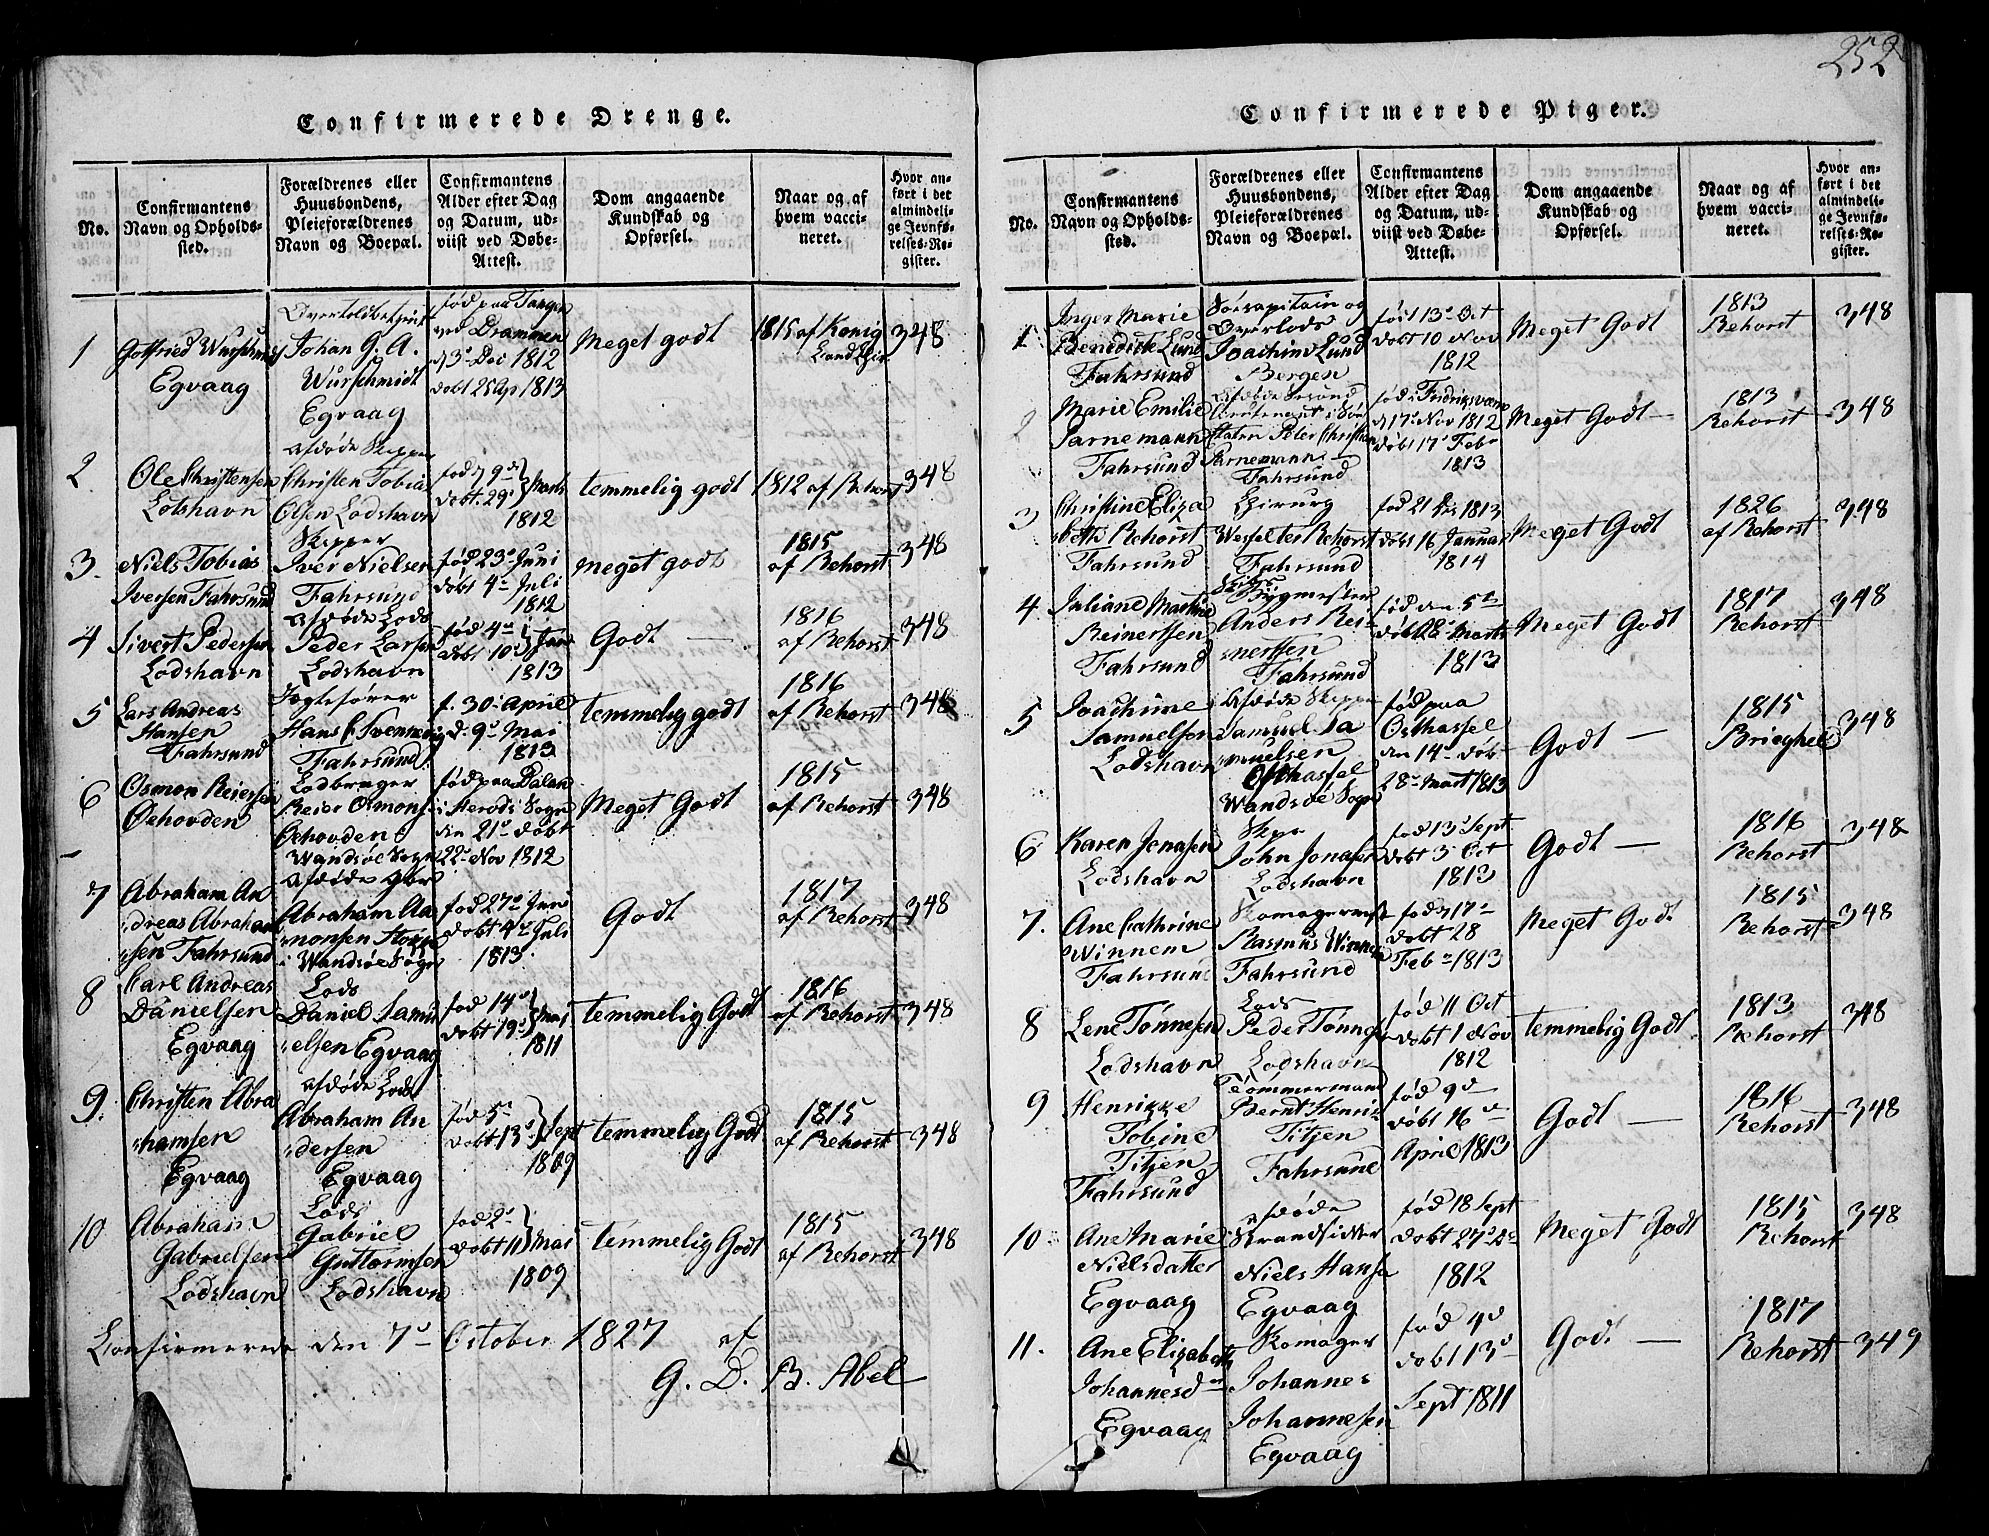 252
Confirmerede Drenge.
No.
Confirmantens
Navn og Opholds-
sted.
Forældrenes eller
Huusbondens,
Pleieforældrenes
Navn og Boepæl.
Confirmantens
Alder efter Dag
og Datum, ud-
viist ved Døbe-
Attest.
Dom angaaende
Kundskab og
Opførsel.
Naar og af
hvem vacci-
neret.
Hvor an-
ført i det
almindeli-
ge Jevnfø-
relses-Re-
gister.
1
Gotfried Wurschmidt
Egvaag
Overtoldbetjent
Johan G. A.
Wurschmidt
Egvaag
fød paa Tangen
ved Drammen
d 3 Dec 1812
døbt 25 Ap 1813
Meget godt
1815 af König
348
2.
Ole Christensen
Lotshavn
afdøde Skipper
Christen Tobias
Olsen Lodshavn
fød 9de
døbt 29 Marts
1812
temmelig godt
1812 af Rehorst
348
3.
Niels Tobias
Iversen Fahrsund
Skipper
Iver Nielsen
Fahrsund
fød 23 Juni
døbt 4 Juli
1812
meget godt
1815
af Rehorst
348
4
Sivert Pedersen
Lodshavn
Afdøde Lods
Peder Larsen
Lodshavn
fød 4
døbt 10
1813
Godt —
1816
af Rehorst
348
5
Lars Andreas
Hansen
Fahrsund
Jogtefører
Hans C Svennevig
Fahrsund
f. 30 April
d. 9 Mai
1813
temmelig godt
1816
af Rehorst
348
6
Osmon Reiersen
Øehovden
Lodbruger
Reier Osmons
Oehovden
Wandsøe Sogn
fød paa Dalan
i Herods Sogn
den 21 døbt
22 Nov 1812
Meget Godt
1815
af Rehorst
348
7
Abraham An
dreas Abraham
sen Fahrsund
Abraham Aa
monsen
i Wandsøe Sogn
fød 27 Juni
døbt 4 Juli
1813
Godt
1817
af Rehorst
348
8
Carl Andreas
Danielsen
Egvaag
Lods
Daniel Samu
elsen Egvaag
fød 14
døbt 19 Mai
1811
temmelig Godt
1816
af Rehorst
348
9.
Christen Abra
hamsen
Egvaag
afdøde Lods
Abraham An
dersen
Egvaag
fød 5
døbt 13 Sept
1809
temmelig Godt
1815
af Rehorst
348
10
Abraham
Gabrielsen
Lodshavn
Lods
Gabriel
Guttormsen
Lodshavn
fød 2
døbt 11 Mai
1809
temmelig Godt
1815
af Rehorst
348
Confirmerede den 7 October 1827 af
G. D. B. Abel
Confirmerede Piger.
No.
Confirmantens
Navn og Opholds-
sted.
Forældrenes eller
Huusbondens,
Pleieforældrenes
Navn og Boepæl.
Confirmantens
Alder efter Dag
og Datum, ud-
viist ved Døbe-
Attest.
Dom angaaende
Kundskab og
Opførsel.
Naar og af
hvem vacci-
neret.
Hvor an-
ført i det
almindeli-
ge Jevnfø-
relses-Re-
gister.
1
Inger Marie
Benedicte Lund
Fahrsund
Søecapitain og
Overlods
Joachim Lund
Bergen
fød 13 Oct
døbt 10 Nov
1812
Meget Godt
1813
Rehorst
348
2
Marie Emilie
Parnemann
Fahrsund
Peter Christian
Parnemann
Fahrsund
fød i Fridriksværn
d 17 Nov 1812
døbt 17 Febr
1813
Meget Godt —
1813
Rehorst
348
3
Christine Eliza
beth Rehorst
Fahrsund
Chirurg
Rehorst
Fahrsund
fød 21 1813
døbt 16 Januar
1814
Meget Godt
1826
af Rehorst
348
4
Juliane Martine
Reinertsen
Fahrsund
Skibs
Bygmester
Anders Rei
nertsen
Fahrsund
fød den 5te
døbt 28 Marts
1813
Meget Godt
1817
Rehorst
348
5
Joachime
Samuelsen
Lodshavn
Afdøde Skipper
Samuel Sa
muelsen
Osthassel
Wandsøe Sogn
fød paa
Osthassel
den 14 døbt
28 Mart 1813
Godt —
1815
Brieghel
348
6
Karen Jonasen
Lodshavn
Skipr
John Jonasen
Lodshavn
fød 13 Sept
døbt 3 Oct
1813
Godt —
1816
Rehorst
348
7.
Ane Cathrine
Winnem
Fahrsund
Skomagermest
Rasmus Winnem
Fahrsund
fød 17
døbt 28
Feb 1813
Meget Godt
1815
Rehorst
348
8
Lene Tønnesen
Lodshavn
Lods
Peder Tønnes
Lodshavn
fød 11 Oct
døbt 1 Nov
1812
temmelig Godt
1813
Rehorst
348
9
Henrikke
Tobine
Titjen
Fahrsund
Tømmermand
Bernt Henrik
Titjen
Fahrsund
fød 9d
døbt 16d
April 1813
Godt —
1816
Rehorst
348
10
Ane Marie
Nielsdatter
Egvaag
afdøde
Strandsidder
Niels Hansen
Egvaag
fød 18 Sept
døbt 27
1812
Meget Godt
1815
Rehorst
348
11.
Ane Elizabeth
Johannesd
Egvaag
Skomager
Johannes
Johannesen
Egvaag
fød 4d
døbt 13d
Sept 1811
Godt —
1817
Rehorst
349